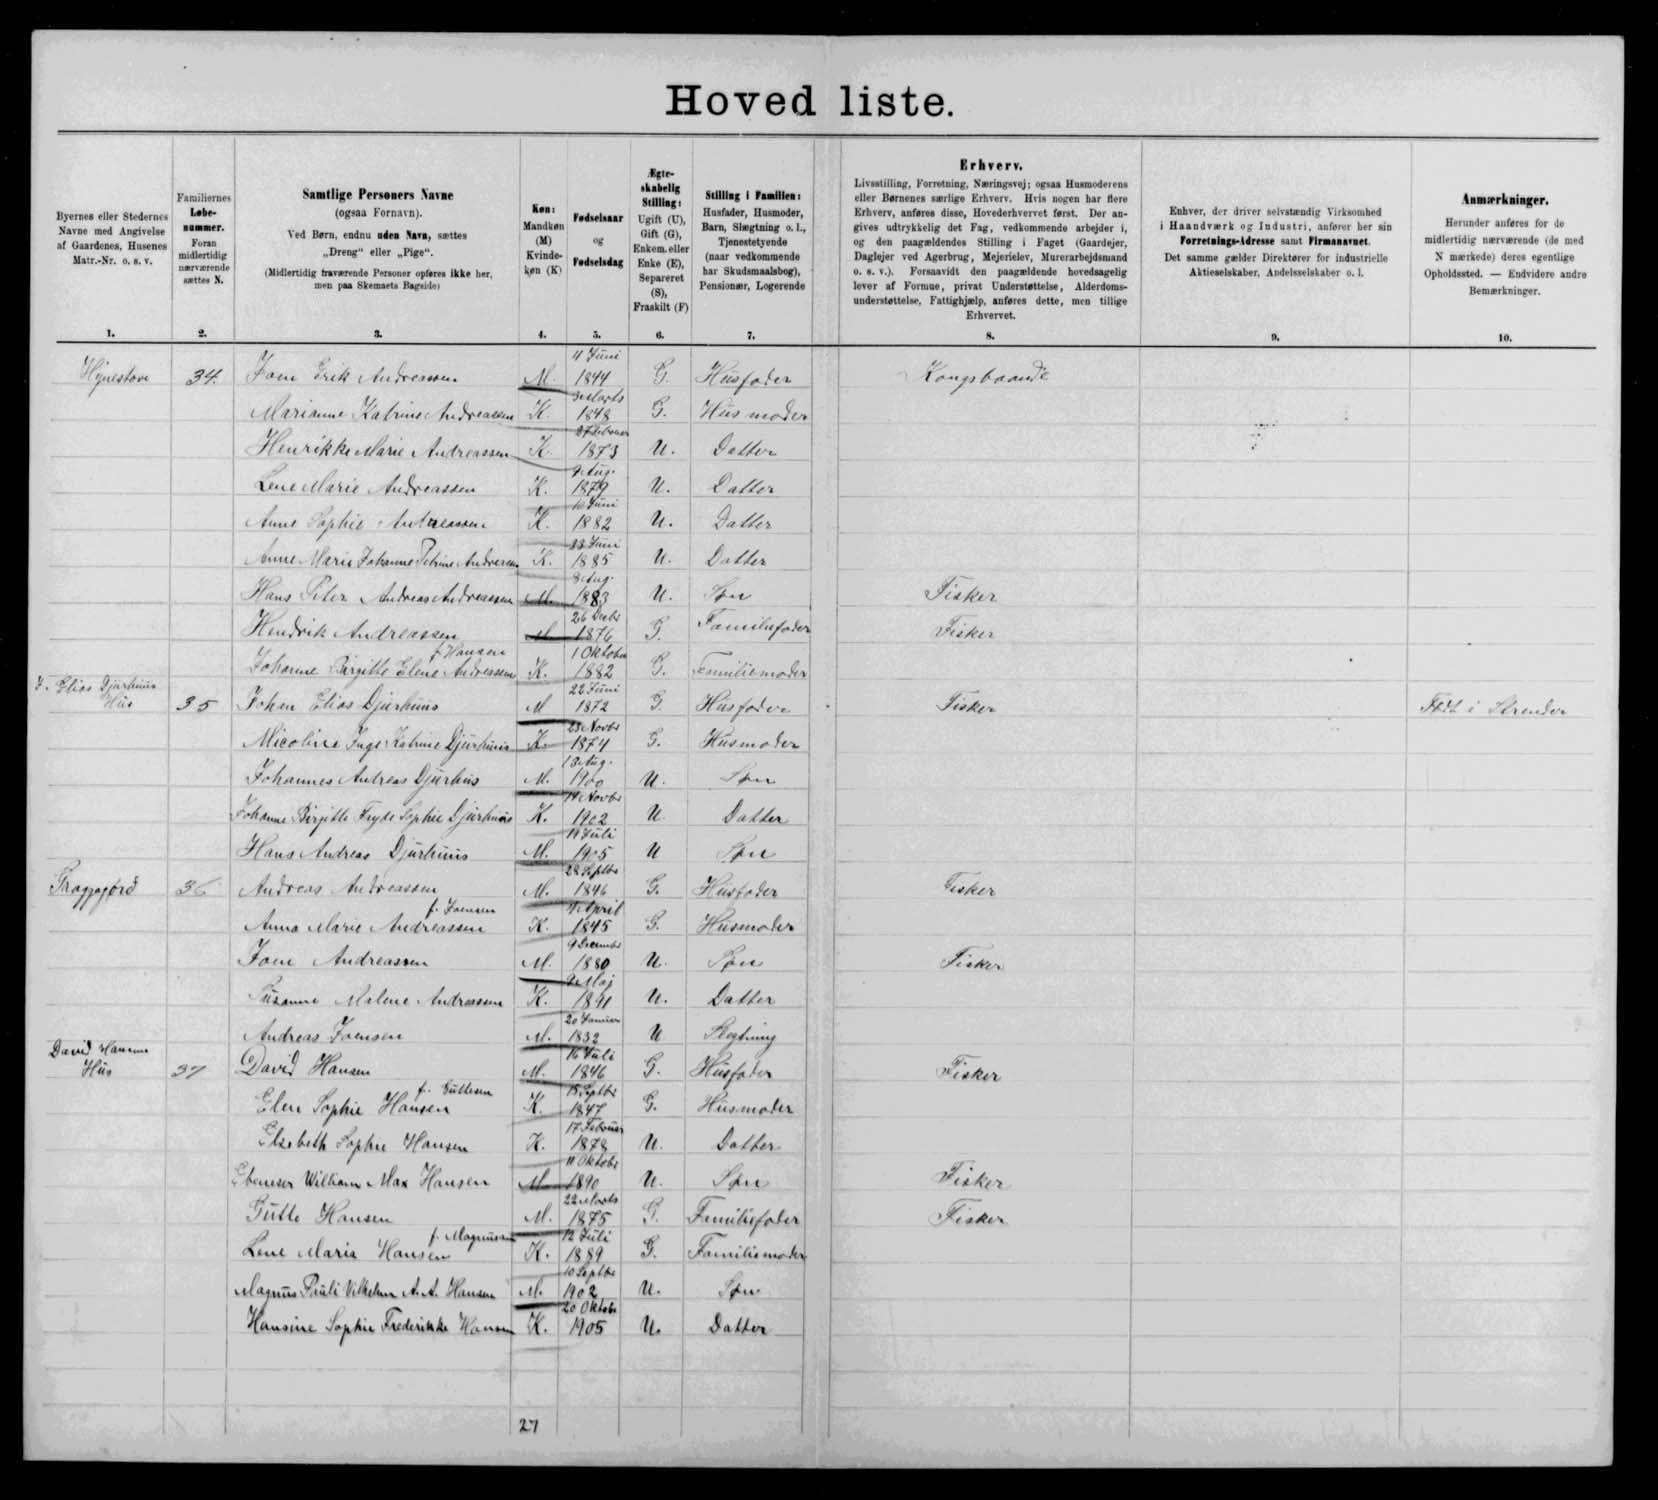 Hovedliste.
Byernes eller Stedernes Navne med Angivelse af Gaardenes, Husenes Matr.-Nr. o. s. v.
Familiernes Løbe-nummer. Foran midlertidig nærværende sættes N.
Samtlige Personers Navne
(ogsaa Fornavn).
Ved Børn, endnu uden Navn, sættes
„Dreng" eller „Pige".
(Midlertidig fraværende Personer opføres ikke her, men paa Skemaets Bagside)
Køn: Mandkøn (M) Kvinde-køn (K)
Fødselsaar og Fødselsdag
Ægte-skabelig Stilling: Ugift (U), Gift (G), Enkem. eller Enke (E), Separeret (S), Fraskilt (F)
Stilling i Familien: Husfader, Husmoder, Barn, Slægtning o. l., Tjenestetyende (naar vedkommende har Skudsmaalsbog), Pensionær, Logerende
Erhverv.
Livsstilling, Forretning, Næringsvej; ogsaa Husmoderens eller Børnenes særlige Erhverv. Hvis nogen har flere Erhverv, anføres disse, Hovederhvervet først. Der an-gives udtrykkelig det Fag, vedkommende arbejder i, og den paagældendes Stilling i Faget (Gaardejer, Daglejer ved Agerbrug, Mejerielev, Murerarbejdsmand o. s. v.). Forsaavidt den paagældende hovedsagelig lever af Formue, privat Understøttelse, Alderdoms-understøttelse, Fattighjælp, anføres dette, men tillige Erhvervet.
Enhver, der driver selvstændig Virksomhed i Haandværk og Industri, anfører her sin Forretnings-Adresse samt Firmanavnet. Det samme gælder Direktører for industrielle Aktieselskaber, Andelsselskaber o. l.
Anmærkninger.
Herunder anføres for de midlertidig nærværende (de med N mærkede) deres egentlige Opholdssted. — Endvidere andre Bemærkninger.
1. 2. 3. 4. 5. 6. 7. 8. 9. 10.
34. Joen Erik Andreassen M. 11 Juni 1844 G. Husfader Kongsbonde
Marianne Katrine Andreassen K. Marts 1848 G. Husmoder
Henrikke Marie Andreassen K. 27 Februar 1873 U. Datter
Lene Marie Andreassen K. 9 Aug. 1879 U. Datter
Anne Sophie Andreassen K. 10 Juni 1882 U. Datter
Anne Marie Johanne Petrine Andreassen K. 23 Juni 1885 U. Datter
Hans Peter Andreas Andreassen M. 8 Aug. 1883 U. Søn Fisker
Hendrik Andreassen M 26 Decbr 1876 G. Familiefader Fisker
Johanne Birgitte Elene Andreassen f. Hansen K. 1 Oktober 1882 G. Familiemoder
J. Elias Djurhuus Hus 35 Johan Elias Djurhuus M 22 Juni 1872 G. Husfader Fisker Født i Strender
Nicoline Inge Katrine Djurhuus K. 23 Novbr 1874 G. Husmoder
Johannes Andreas Djurhus M. 13 Aug. 1900 U. Søn
Johanne Birgitte Sophie Djurhuus K. 14 Novbr 1902 U. Datter
Hans Andreas Djurhuus M. 11 Juli 1905 U Søn
36 Andreas Andreassen M. 28 Septbr 1846 G. Husfader Fisker
Anna Marie Andreassen f. Joensen K. 4 April 1845 G. Husmoder
Joen Andreassen M. 9 December 1880 U. Søn Fisker
Susanne Malene Andreassen K. 9 Maj 1891 U. Datter
Andreas Joensen M. 20 Januar 1832 U Slegtning
David Hansens Hus 37 David Hansen M. 16 Juli 1846 G. Husfader Fisker
Elen Sophie Hansen f. Guttesen K. 18 Septbr 1847 G. Husmoder
Elsebeth Sophie Hansen K. 17 Februar 1878 U. Datter
Ebeneser William Max Hansen M 11 Oktobr 1890 U. Søn Fisker
Gutte Hansen M. 22 Marts 1875 G. Familiefader Fisker
Lene Maria Hansen f. Magnussen K. 12 Juli 1889 G. Familiemoder
Magnus Pauli Vilhelm A. A. Hansen M. 10 Septbr 1902 U. Søn
Hansine Sophie Frederikke Hansen K. 20 Oktobr 1905 U. Datter
27